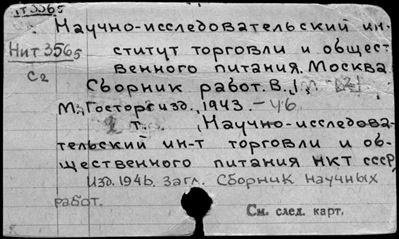 ıт 3565
Научно-исследовательский ин-
Нит 3565
ститут торговли и общест
С2
венного питания. Москва
Сборник работ. В. 1
М., Госторгизд., 1943.-46.
т. , Научно-исследова-
тельский ин-т торговли и об-
щественного питания НКТ СССР,
Изд. 1946. загл. Сборник научных
работ.
См. след. карт.